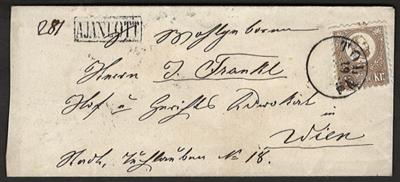 281 AJÁNLOTT
Wohlgeboren
Herrn J. Frankl
Hof u Gerichts Advokat
in
Wien
Stadt, Tuchlauben No 18.
KR.